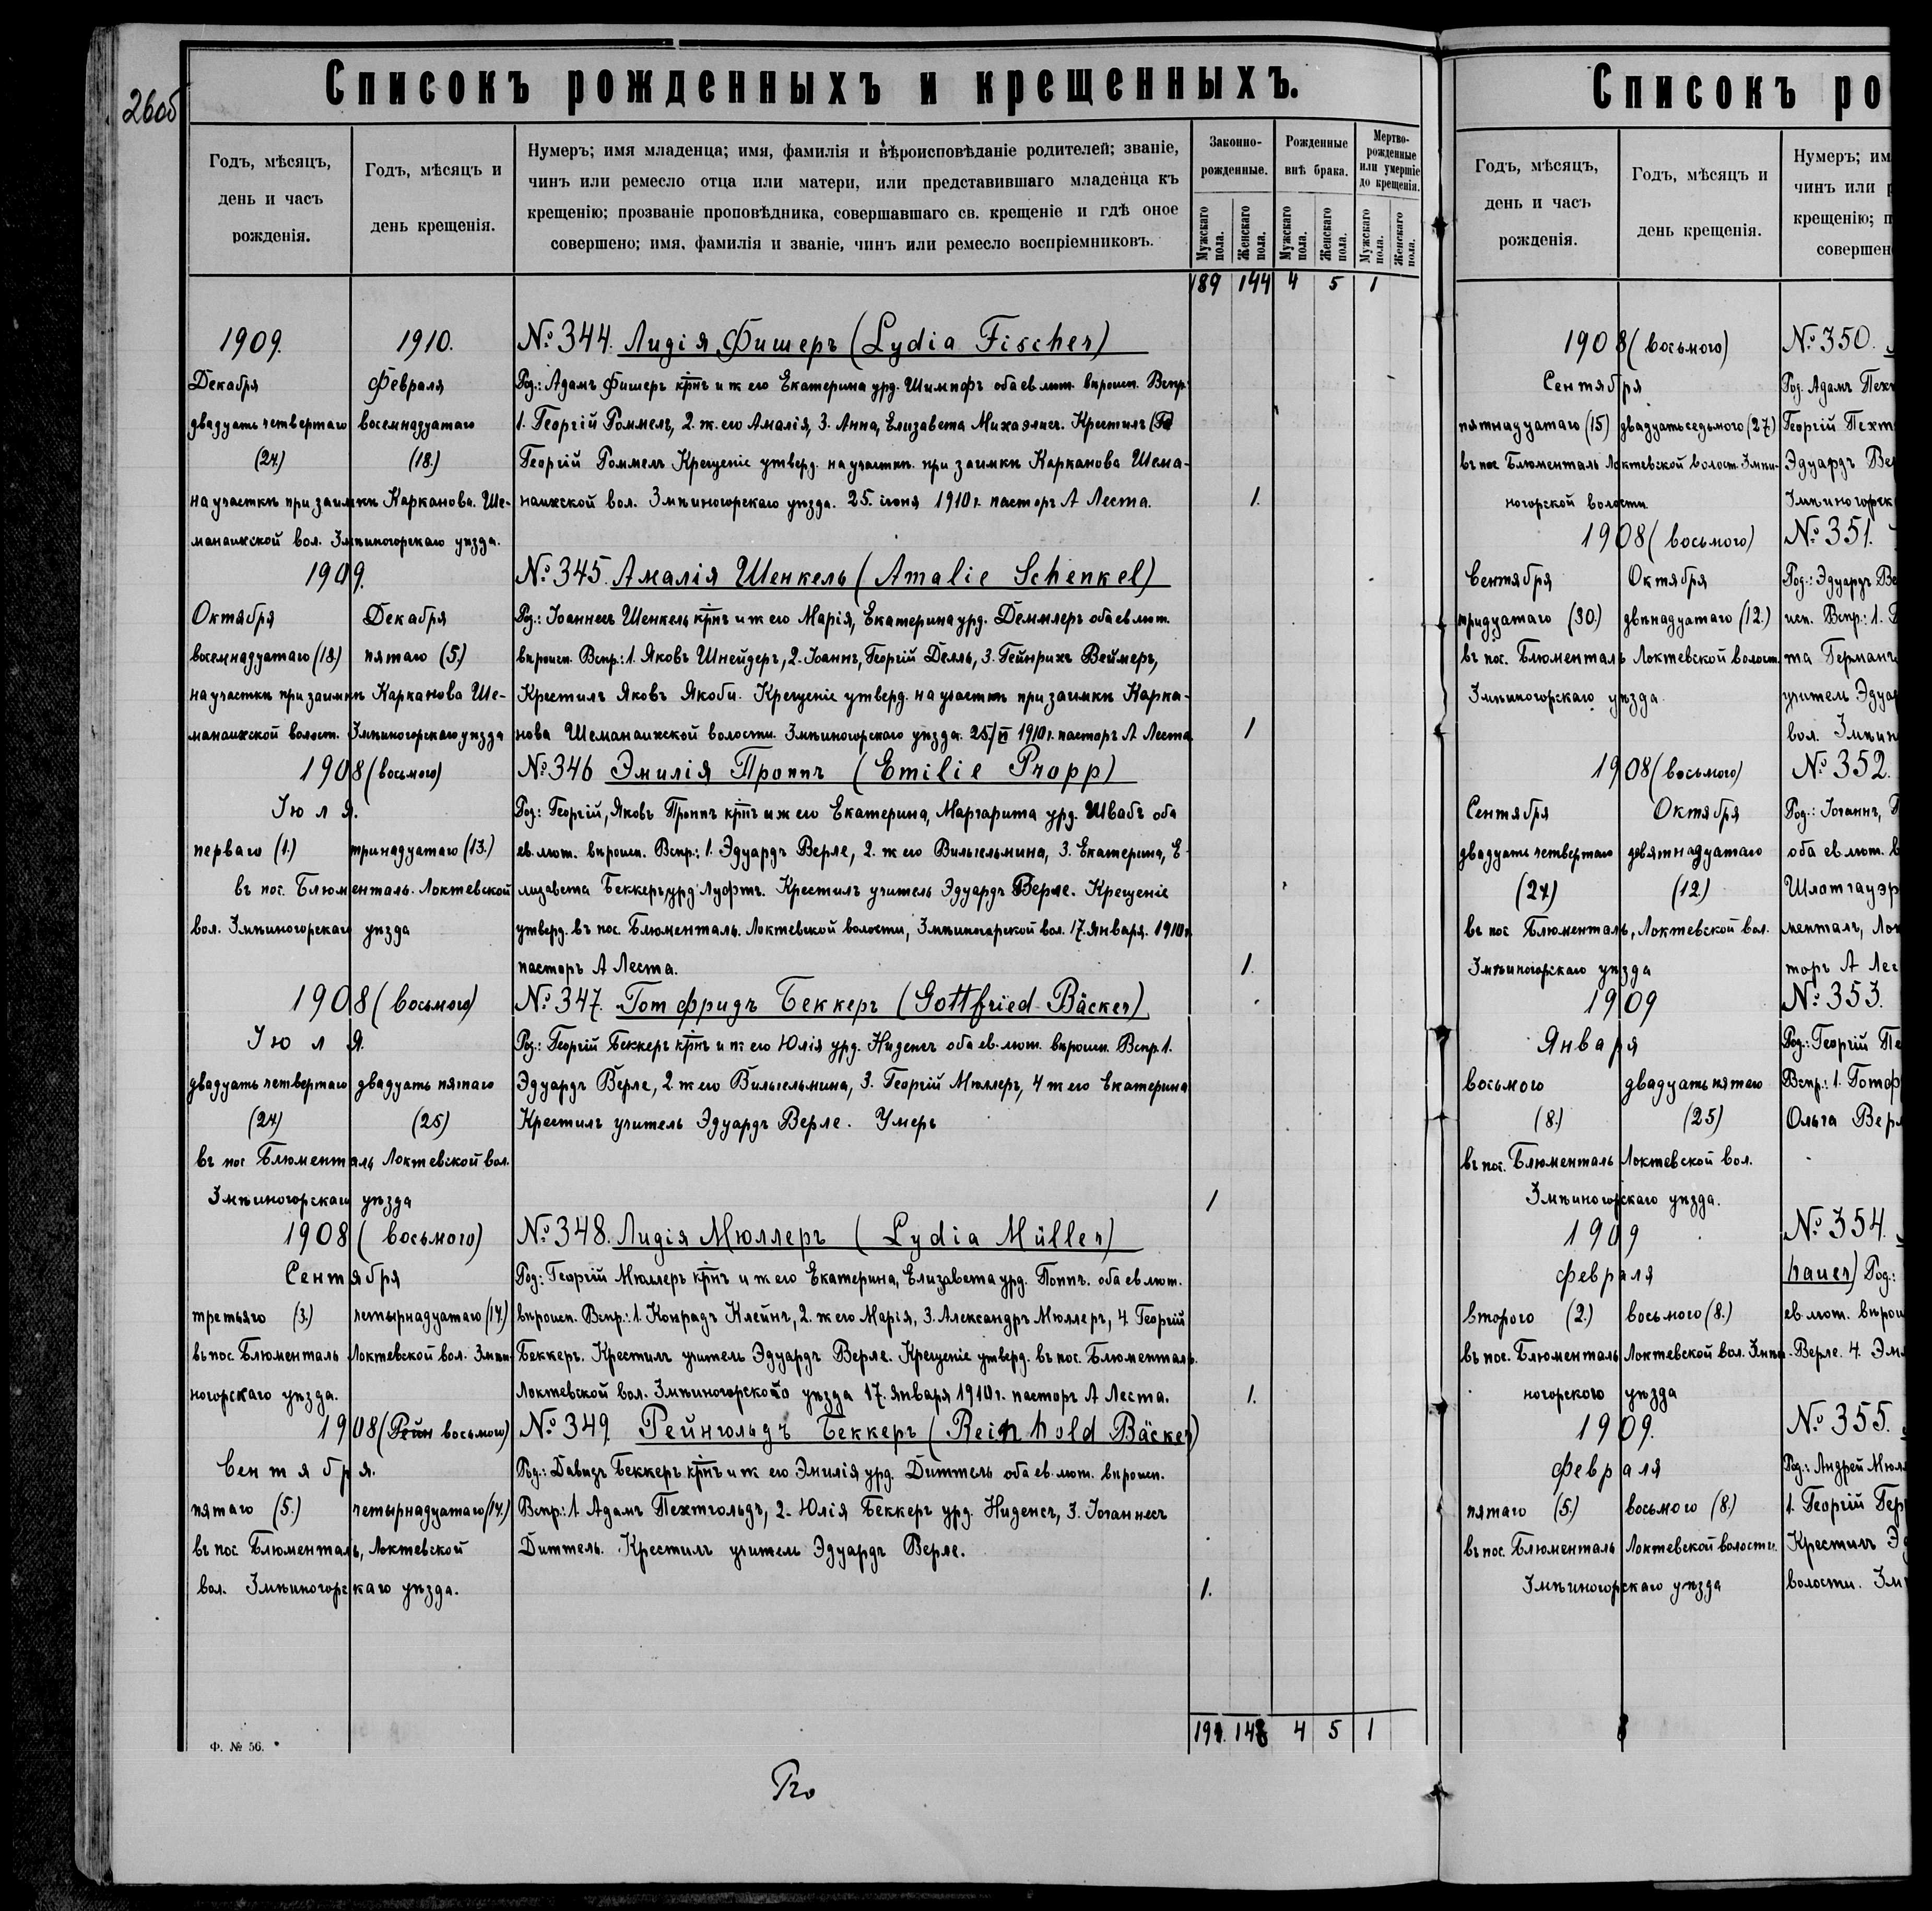 260б
Списокъ рожденныхъ и крещенныхъ.
Годъ, мѣсяцъ,
день и часъ
рожденія.
Годъ, мѣсяцъ и
день крещенія.
Нумеръ; имя младенца; имя, фамилія и вѣроисповѣданіе родителей; званіе,
чинъ или ремесло отца или матери, или представившаго младенца къ
крещенію; прозваніе проповѣдника, совершавшаго св. крещеніе и гдѣ оное
совершено; имя, фамилія и званіе, чинъ или ремесло воспріемниковъ.
Законно-
рожденные.
Рожденные
внѣ брака.
Мертво-
рожденные
или умершіе
до крещенія.
Мужскаго пола.
Женскаго пола.
Мужскаго пола.
Женскаго пола.
Мужскаго пола.
Женскаго пола.
189 144 4 5 1
1909. 1910. № 344. Лидія Фишеръ (Lydia Fischer)
Декабря Февраля Род.: Адамъ Фишеръ крнъ и ж его Екатерина урд. Шимпфъ оба ев лют. вѣроисп. Вспр.
двадцать четвертаго восемнадцатаго 1. Георгій Роммель, 2. ж. его Амалія, 3. Анна, Елизавета Михаэлисъ. Крестилъ
(24.) (18.) Георгій Роммель Крещеніе утверд. на участкѣ при заимкѣ Карканова Шема-
на участкѣ при заимкѣ Карканова. Ше- наихской вол. Змѣиногорскаго уѣзда. 25. іюня 1910 г. пасторъ А Леста. 1.
манаихской вол. Змѣиногорскаго уѣзда.
1909. № 345. Амалія Шенкель (Amalie Schenkel)
Октября Декабря Род.: Іоаннесъ Шенкель крнъ и ж его Марія, Екатерина урд. Деммлеръ оба ев лют.
восемнадцатаго (18.) пятаго (5.) вѣроисп. Вспр.: 1. Яковъ Шнейдеръ, 2. Іоаннъ, Георгій Делль, 3. Гейнрихъ Веймеръ,
на участкѣ при заимкѣ Карканова Ше- Крестилъ Яковъ Якоби. Крещеніе утверд. на участкѣ при заимкѣ Карка-
манаихской волост. Змѣиногорскаго уѣзда нова Шеманаихской волости. Змѣиногорскаго уѣзда. 25/VI 1910 г. пасторъ А Леста 1
1908 (восьмого) № 346 Эмилія Проппъ (Emilie Propp)
Іюля. Род: Георгій, Яковъ Проппъ крнъ и ж его Екатерина, Маргарита урд. Швабъ оба
перваго (1.) тринадцатаго (13.) ев. лют. вѣроисп. Вспр.: 1. Эдуардъ Верле, 2. ж его Вильгельмина, 3. Екатерина, Е-
въ пос. Блюменталь. Локтевской лизавета Беккеръ, урд Луфтъ. Крестилъ учитель Эдуардъ Верле. Крещеніе
вол. Змѣиногорскаго уѣзда утверд. въ пос. Блюменталь. Локтевской волости, Змѣиногорской вол. 17. Января. 1910 г.
пасторъ А Леста. 1.
1908 (восьмого) № 347. Готфридъ Беккеръ (Gottfried Bäcker)
Іюля. Род.: Георгій Беккеръ крнъ и ж его Юлія урд. Ниденсъ оба ев. лют. вѣроисп. Вспр. 1.
двадцать четвертаго двадцать пятаго Эдуардъ Верле, 2. ж его Вильгельмина, 3. Георгій Мюллеръ, 4 ж его Екатерина
(24) (25) Крестилъ учитель Эдуардъ Верле. Умеръ
въ пос Блюменталь Локтевской вол.
Змѣиногорскаго уѣзда 1
1908 (восьмого) № 348. Лидія Мюллеръ (Lydia Müller)
Сентября Род: Георгій Мюллеръ крнъ и ж его Екатерина, Елизавета урд. Поппъ. оба ев лют.
третьяго (3.) четырнадцатаго (14.) вѣроисп. Вспр.: 1. Конрадъ Клейнъ, 2. ж его Марія, 3. Александръ Мюллеръ, 4. Георгій
въ пос. Блюменталь Локтевской вол. Змѣи- Беккеръ. Крестилъ учитель Эдуардъ Верле. Крещеніе утверд. въ пос. Блюменталь.
ногорскаго уѣзда. Локтевской вол. Змѣиногорскаго уѣзда 17. января 1910 г. пасторъ А Леста. 1.
1908 (Рейн восьмого) № 349 Рейнгольдъ Беккеръ (Reinhold Bäcker)
Сентября. Род.: Давидъ Беккеръ крнъ и ж его Эмилія урд. Диттель оба ев. лют. вѣроисп.
пятаго (5.) четырнадцатаго (14.) Вспр.: 1. Адамъ Пехтгольдъ, 2. Юлія Беккеръ урд. Ниденсъ, 3. Іоганнесъ
въ пос. Блюменталь, Локтевской Диттель. Крестилъ учитель Эдуардъ Верле.
вол. Змѣиногорскаго уѣзда. 1.
148 4 5 1
Ф. № 56.
Списокъ ро
Годъ, мѣсяцъ,
день и часъ
рожденія.
Годъ, мѣсяцъ и
день крещенія.
Нумеръ; им
чинъ или р
крещенію; п
совершен
1908 (восьмого) № 350.
Сентября Род. Адамъ Пехт
пятнадцатаго (15) двадцать седьмого (27.) Георгій Пехт
въ пос Блюменталь Локтевской волост. Змѣи- Эдуардъ Вер
ногорской волости Змѣиногорск
1908 (восьмого) № 351.
Сентября Октября Род.: Эдуардъ Ве
тридцатаго (30.) двѣнадцатаго (12.) исп. Вспр.: 1.
въ пос. Блюменталь Локтевской волост. та Германъ
Змѣиногорскаго уѣзда. учитель Эдуар
вол. Змѣин
1908 (восьмого) № 352.
Сентября Октября Род.: Іоганнъ,
двадцать четвертаго девятнадцатаго оба ев. лют. в
(24) (12.) Шлотгауэр
въ пос Блюменталь, Локтевской вол. менталь, Лок
Змѣиногорскаго уѣзда торъ А Лес
1909 № 353.
Января Род.: Георгій Пе
восьмого двадцать пятаго Вспр.: 1. Готф
(8.) (25) Ольга Верл
въ пос. Блюменталь Локтевской вол.
Змѣиногорскаго уѣзда.
1909 № 354.
Февраля hauer) Род.:
второго (2.) восьмого (8.) ев. лют. вѣрои
въ пос. Блюменталь Локтевской вол. Змѣи- Верле. 4. Эм
ногорского уѣзда
1909. № 355.
Февраля Род.: Андрей Мюл
пятаго (5.) восьмого (8.) 1. Георгій Гер
въ пос. Блюменталь Локтевской волости. Крестилъ Э
Змѣиногорскаго уѣзда волости. Зм